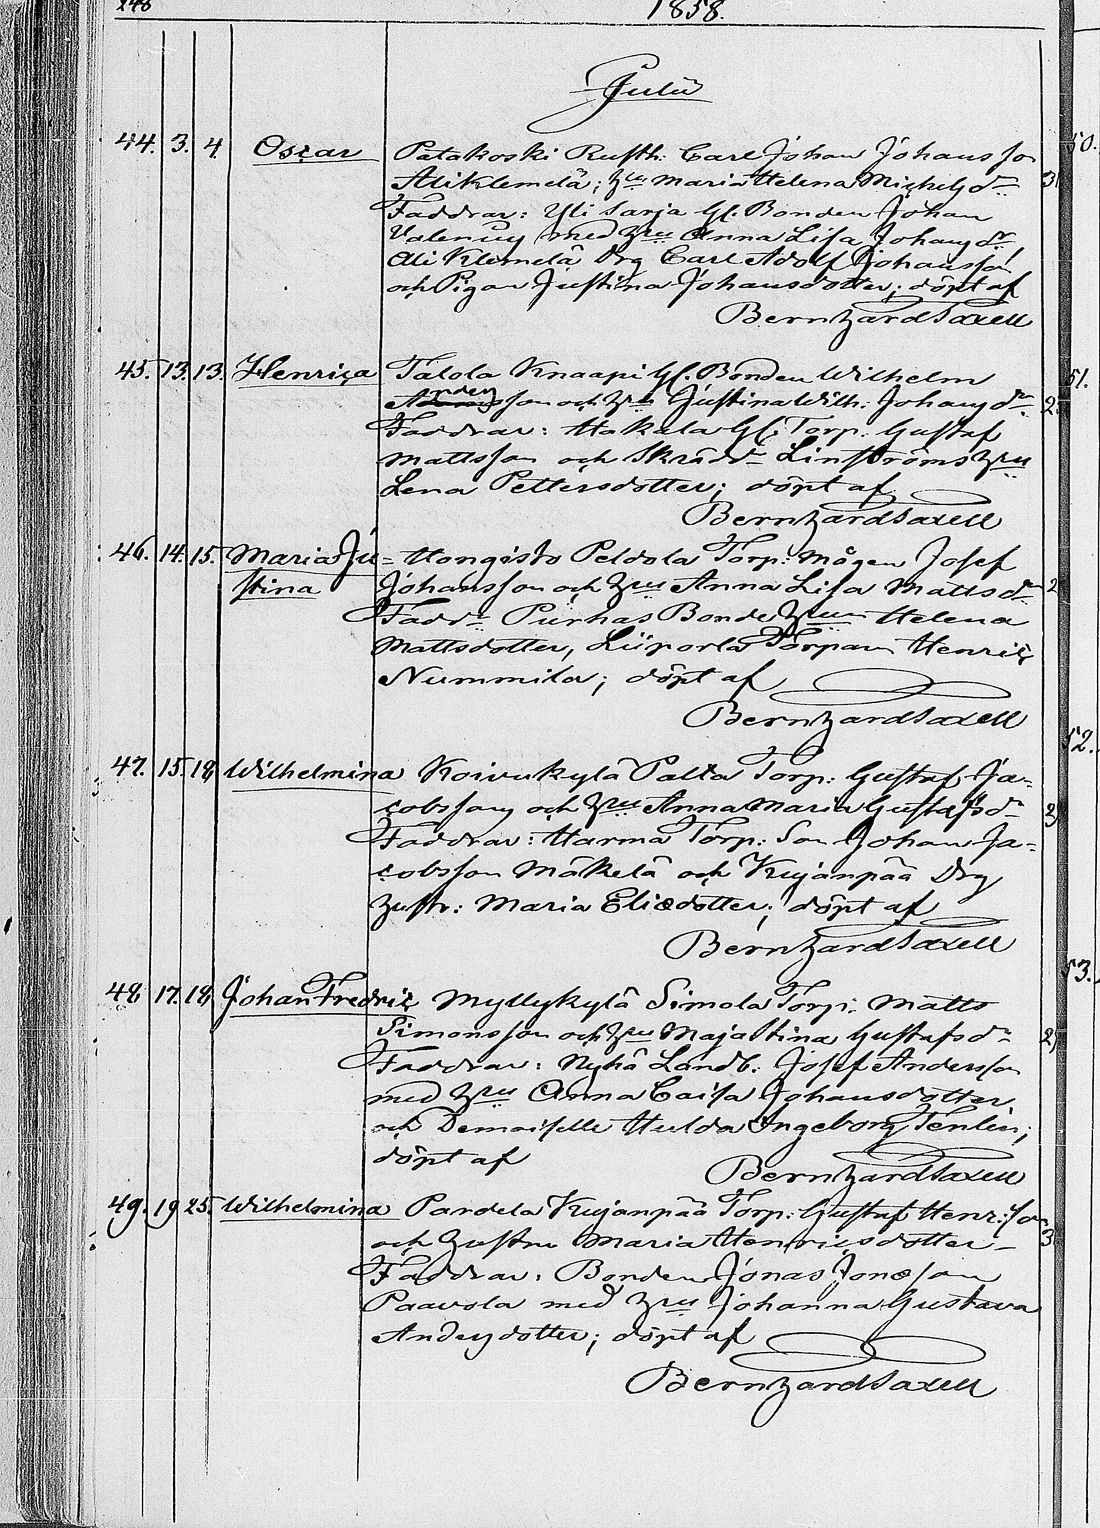 246
1858.
Julii
44. 3. 4. Oscar Patakoski Rusth: Carl Johan Johansson
Aliklemelä; hru Maria Helena Michelsdr 3
Faddrar: Yli Sarja Gl. Bonden Johan
med hru Anna Lisa Johansdr,
Ali Klemelä Drg Carl Adolf Johansson
och Pigan Justina Johansdotter; döpt af
Bernhard Saxell
45. 13. 13. Henrica Talola Knaapi Gl. Bonden Wilhelm
Andersson och hru Justina Wilh: Johansdr 2
Faddrar: Hakala Gl. Torp: Gustaf
Mattsson och Skrädd Linströms hru
Lena Pettersdotter; döpt af
Bernhard Saxell
46. 14. 15. Maria Ju= Hongisto Peldola Torp: mågen Josef
stina Johansson och hru Anna Lisa Mattsdr 2
Faddr Purhas Bonde hrun Helena
Mattsdotter, Torparn Henric
Nummila; döpt af
Bernhard Saxell
47. 15. 18. Wilhelmina Koivukylä Palta Torp: Gustaf Ja=
cobsson och hru Anna Maria Gustafsdr 2
Faddrar: Harma Torp: Son Johan Ja=
cobsson Mäkelä och Kujanpää Drg
hustr: Maria Eliædotter; döpt af
Bernhard Saxell
48. 17. 18. Johan Fredric Myllykylä Simola Torp: Matts
Simonsson och hru Maja Stina Gustafsdr 2
Faddrar: Nyhä Landb. Josef Andersson
med hru Anna Caisa Johansdotter
och Demoiselle Hulda Ingeborg Tenlin;
döpt af
Bernhard Saxell
49. 19 25. Wilhelmina Pandela Kujanpää Torp: Gustaf Henr:son
och hustru Maria Henricsdotter 3
Faddrar: Bonden Jonas Jonæson
Paavola med hru Johanna Gustava
Andersdotter; döpt af
Bernhard Saxell
50.
51.
52.
53.